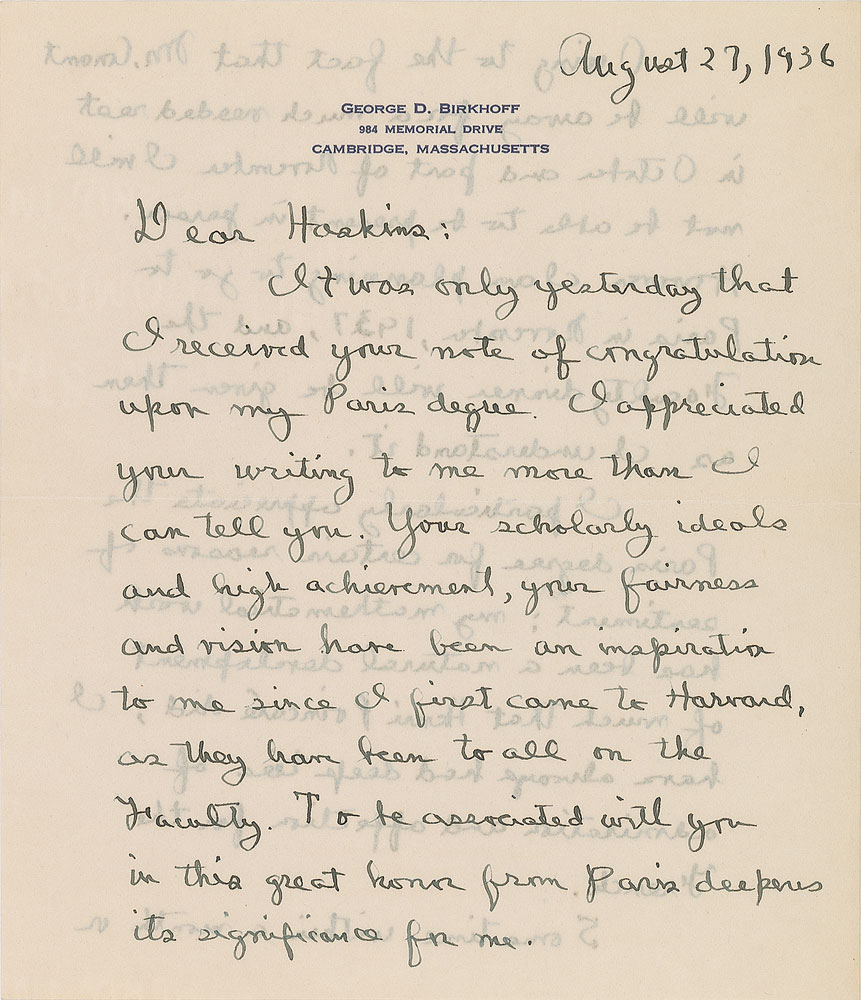 August 27, 1936
GEORGE D. BIRKHOFF
984 MEMORIAL DRIVE
CAMBRIDGE, MASSACHUSETTS
Dear Haskins:
It was only yesterday that
I received your note of congratulation
upon my Paris degree. I appreciated
your writing to me more than I
can tell you. Your scholarly ideals
and high achievement, your fairness
and vision have been an inspiration
to me since I first came to Harvard,
as they have been to all on the
Faculty. To be associated with you
in this great honor from Paris deepens
its significance for me.